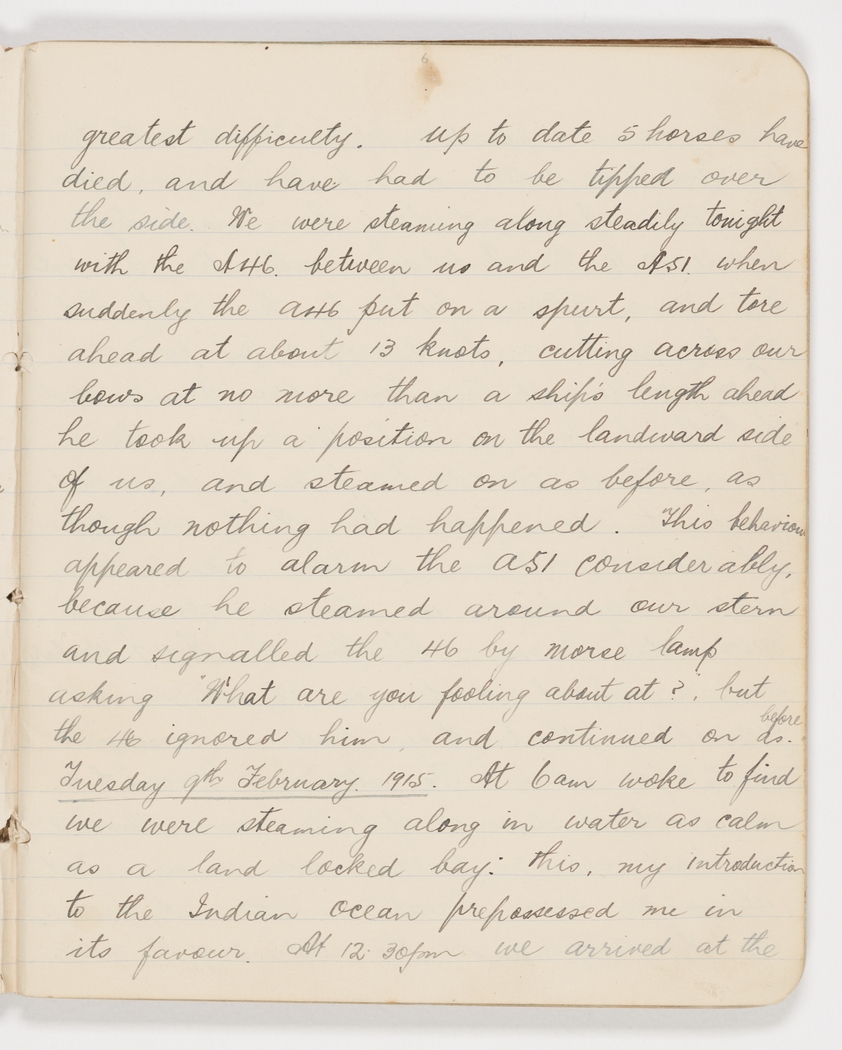 6
greatest difficulty. Up to date 5 horses have
died, and have had to be tipped over
the side. We were steaming along steadily tonight
with the A46. between us and the A51. when
suddenly the A46 put on a spurt, and tore
ahead at about 13 knots, cutting across our
bows at no more than a ship's length ahead
he took up a position on the landward side
of us, and steamed on as before, as
though nothing had happened. This behaviour
appeared to alarm the A51 considerably,
because he steamed around our stern
and signalled the 46 by morse lamp
asking "What are you fooling about at?", but
the 46 ignored him, and continued on as before.
Tuesday 9th February. 1915. At 6am woke to find
we were steaming along in water as calm
as a land locked bay: this, my introduction
to the Indian Ocean prepossessed me in
its favour. At 12.30pm we arrived at the